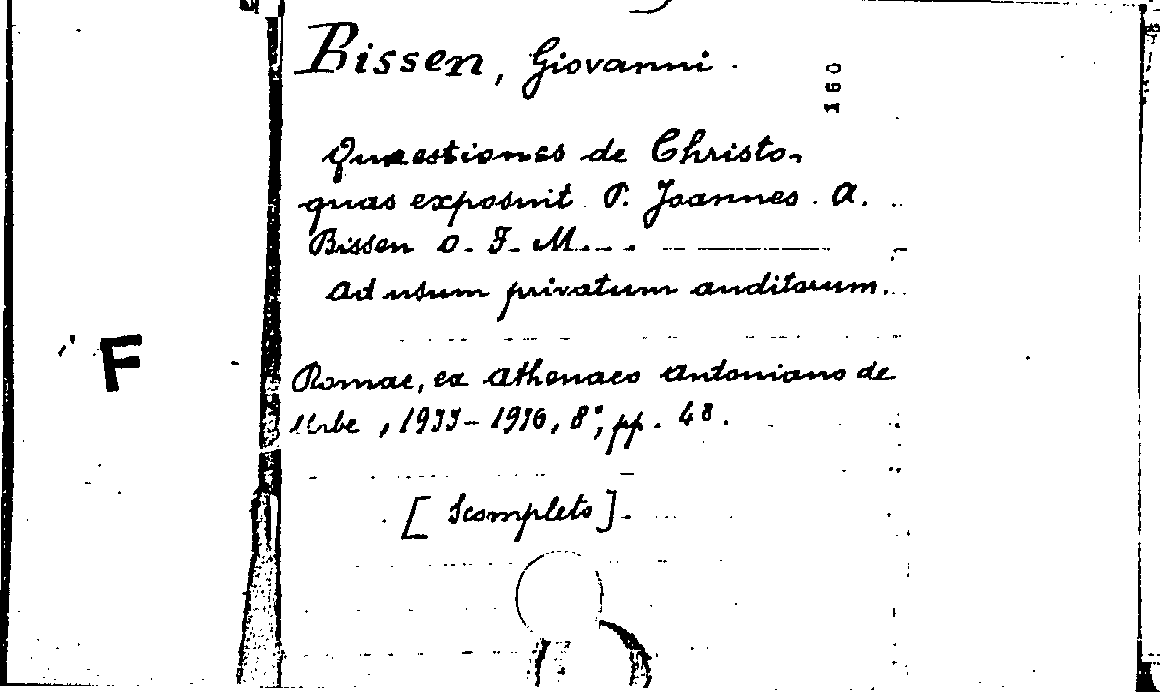 Bissen, Giovanni.
160
Quaestiones de Christo,
quas exposuit P. Joannes. A.
Bissen O. F. M...
ad usum privatum auditorum.
F
Romae, ex Athenaeo Antoniano de
Urbe, 1935-1936, 8°, pp. 48.
[Scompleto].